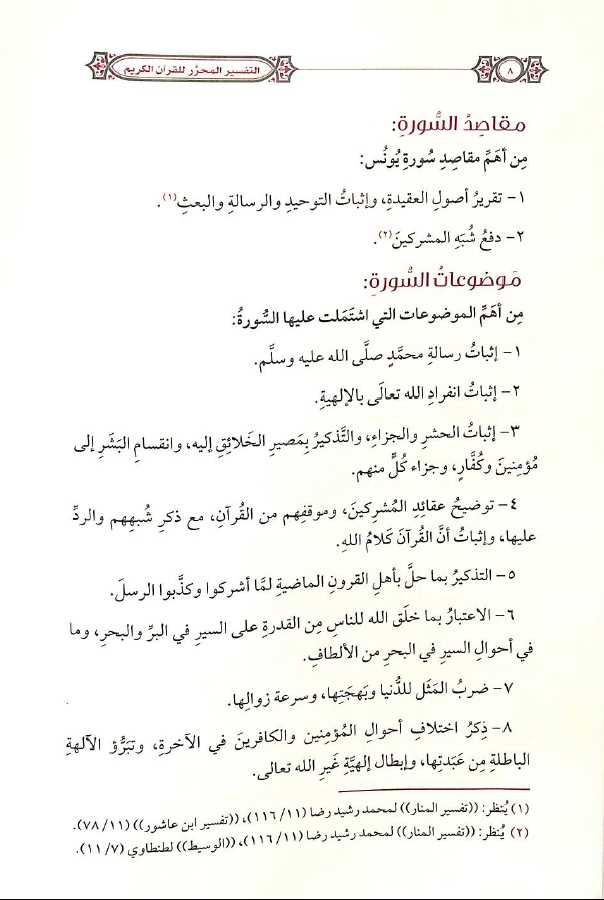 ٨
التفسير المحرَّر للقرآن الكريم
مقاصِدُ السُّورةِ:
مِن أهَمِّ مقاصِدِ سُورةِ يُونُس:
١- تقريرُ أصولِ العقيدةِ، وإثباتُ التوحيدِ والرسالةِ والبعثِ(١).
٢- دفعُ شُبَهِ المشركينَ(٢).
مَوضوعاتُ السُّورةِ:
مِن أهَمِّ الموضوعات التي اشتَمَلت عليها السُّورةُ:
١- إثباتُ رسالةِ محمَّدٍ صلَّى الله عليه وسلَّم.
٢- إثباتُ انفرادِ الله تعالَى بالإلهيةِ.
٣- إثباتُ الحشرِ والجزاءِ، والتَّذكيرُ بمَصيرِ الخَلائقِ إليه، وانقسامِ البَشَرِ إلى
مُؤمِنينَ وكُفَّارٍ، وجزاء كُلٍّ منهم.
٤- توضيحُ عقائدِ المُشرِكينَ، وموقفِهم من القُرآنِ، مع ذكرِ شُبهِهم والردِّ
عليها، وإثباتُ أنَّ القُرآنَ كَلامُ اللهِ.
٥- التذكيرُ بما حلَّ بأهلِ القرونِ الماضيةِ لمَّا أشركوا وكذَّبوا الرسلَ.
٦- الاعتبارُ بما خلَق الله للناسِ مِن القدرةِ على السيرِ في البرِّ والبحرِ، وما
في أحوالِ السيرِ في البحرِ من الألطافِ.
٧- ضربُ المَثَل للدُّنيا وبَهجَتِها، وسرعة زوالِها.
٨- ذِكرُ اختلافِ أحوالِ المُؤمِنين والكافرينَ في الآخرةِ، وتبَرُّؤ الآلهةِ
الباطلةِ مِن عَبَدتِها، وإبطال إلهيَّةِ غَيرِ الله تعالى.
(١) يُنظر: ((تفسير المنار)) لمحمد رشيد رضا (١١/ ١١٦)، ((تفسير ابن عاشور)) (١١/ ٧٨).
(٢) يُنظر: ((تفسير المنار)) لمحمد رشيد رضا (١١/ ١١٦)، ((الوسيط)) لطنطاوي (٧/ ١١).